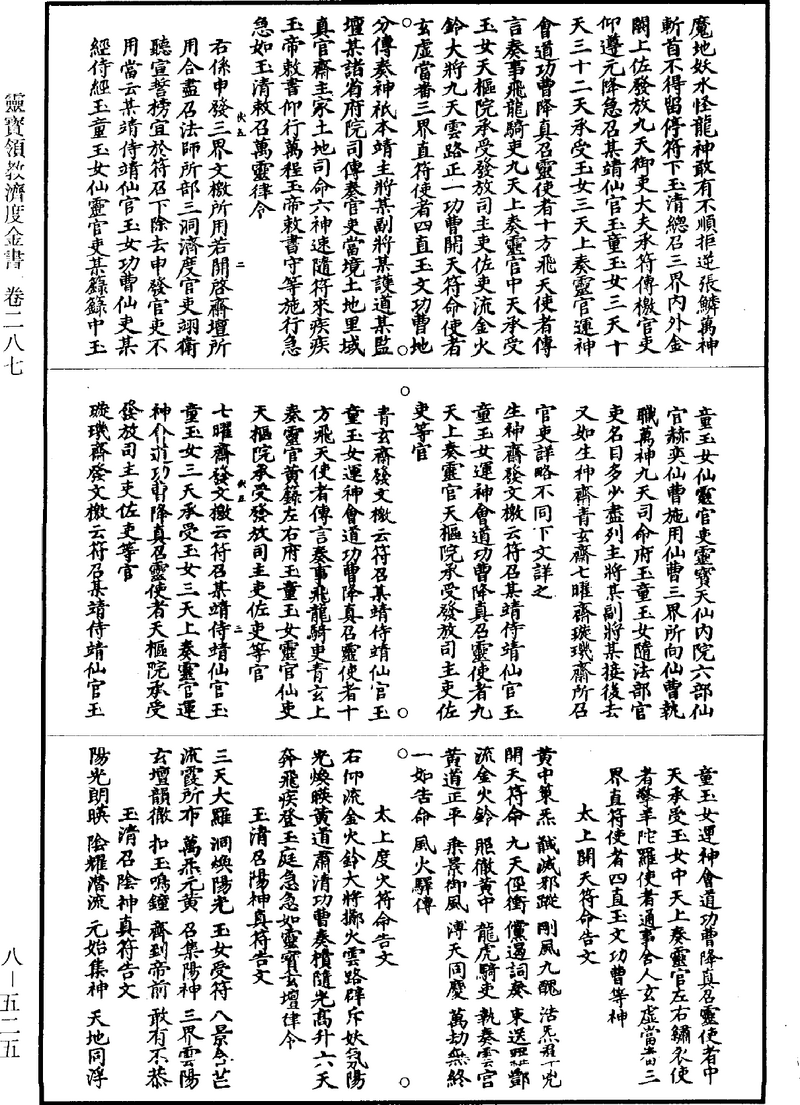 靈寶領教濟度金書 卷二八七
八—五二五
魔地妖水怪龍神敢有不順拒逆張鱗萬神
斬首不得留停符下玉清總召三界內外金
闕上佐發放九天御吏大夫承符傳檄官吏
仰遵元降急召某靖仙官玉童玉女三天十
天三十二天承受玉女三天上奏靈官運神
會道功曹降真召靈使者十方飛天使者傳
言奏事飛龍騎吏九天上奏靈官中天承受
玉女天樞院承受發放司主吏佐吏流金火
鈴大將九天雲路正一功曹開天符命使者
玄虛當番三界直符使者四直玉文功曹地
分傳奏神祇本靖主將某副將某護道某監
壇某諸省府院司傳奏官吏當境土地里域
真官齋主家土地司命六神速隨符來疾疾
玉帝敕書仰行萬程玉帝敕書守等施行急
急如玉清敕召萬靈律令
右係申發三界文檄所用若開啓齋壇所
用合盡召法師所部三洞濟度官吏翊衛
聽宣誓榜宜於符召下除去申發官吏不
用當云某靖侍靖仙官玉女功曹仙吏某
經侍經玉童玉女仙靈官吏某籙籙中玉
童玉女仙靈官吏靈寶天仙內院六部仙
官赫奕仙曹施用仙曹三界所向仙曹執
職萬神九天司命府玉童玉女隨法部官
吏名目多少盡列主將某副將某接後去
又如生神齋青玄齋七曜齋璇璣齋所召
官吏詳略不同下文詳之
生神齋發文檄云符召某靖侍靖仙官玉
童玉女運神會道功曹降真召靈使者九
天上奏靈官天樞院承受發放司主吏佐
吏等官
青玄齋發文檄云符召某靖侍靖仙官玉
童玉女運神會道功曹降真召靈使者十
方飛天使者傳言奏事飛龍騎吏青玄上
奏靈官黃籙左右府玉童玉女靈官仙吏
天樞院承受發放司主吏佐吏等官
七曜齋發文檄云符召某靖侍靖仙官玉
童玉女三天承受玉女三天上奏靈官運
神會道功曹降真召靈使者天樞院承受
發放司主吏佐吏等官
璇璣齋發文檄云符召某靖侍靖仙官玉
童玉女運神會道功曹降真召靈使者中
天承受玉女中天上奏靈官左右繡衣使
者擎羊陀羅使者通事舍人玄虛當番三
界直符使者四直玉文功曹等神
太上開天符命告文
黃中策炁 馘滅邪蹤 剛風九醜 浩炁
開天符命 九天徑衝 儻遏詞奏 束送 酆
流金火鈴 照徹黃中 龍虎騎吏 執奏雲宮
黃道正平 乘景御風 溥天同慶 萬劫無終
一如告命 風火驛傳
太上度火符命告文
右仰流金火鈴大將擲火雲路辟斥妖氛陽
光煥暎黃道肅清功曹奏櫝隨光高升六天
奔飛疾登玉庭急急如靈寶玄壇律令
玉清召陽神真符告文
三天大羅 洞煥陽光 玉女受符 八景含芒
流霞所布 萬炁元黃 召集陽神 三界雲陽
玄壇韻徹 扣玉鳴鐘 齋到帝前 敢有不恭
玉清召陰神真符告文
陽光朗暎 陰耀潛流 元始集神 天地同浮